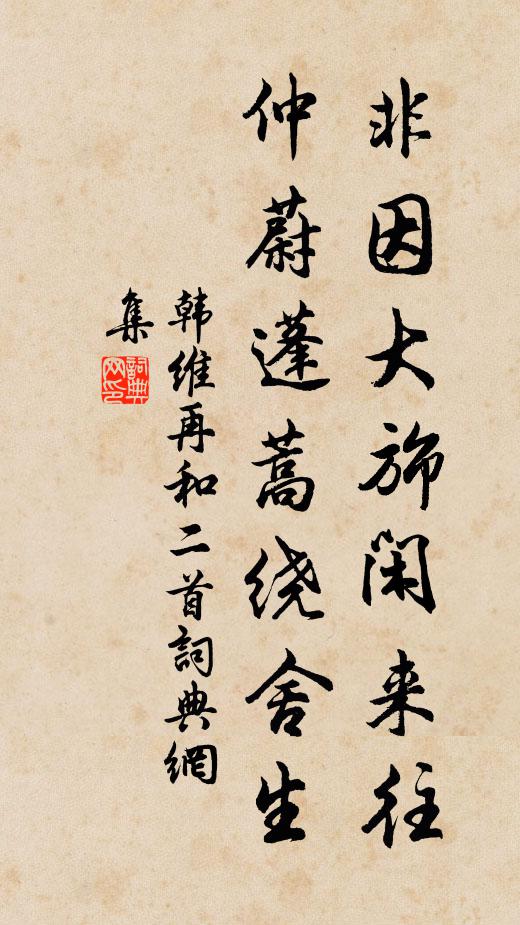 非因大旆闲来往
仲蔚蓬蒿绕舍生
韩维再和二首詞典網
集
詞典
网印